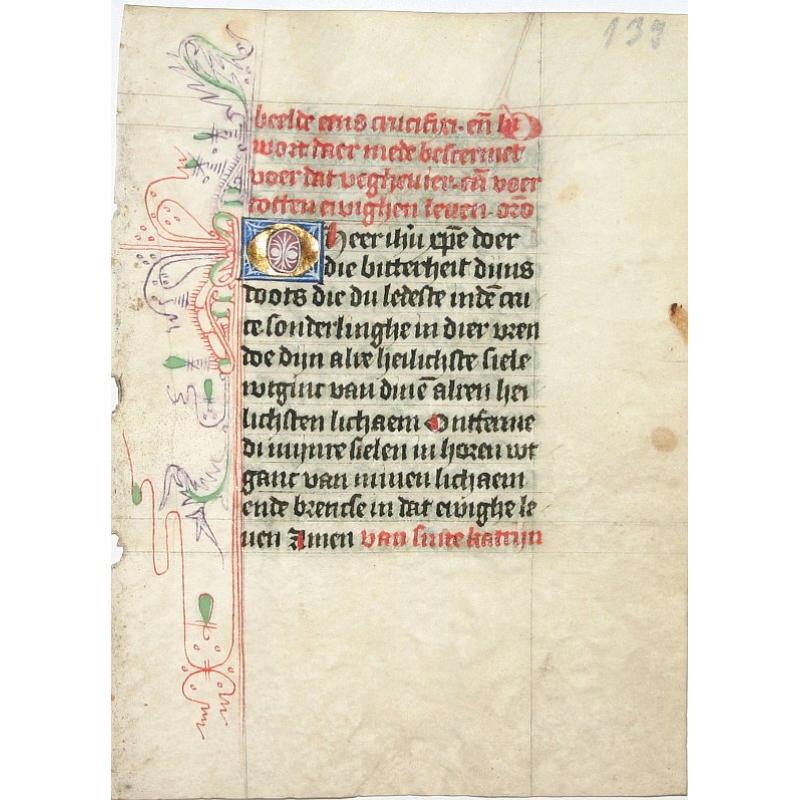 133
beelde eens crucifixi. en̄ hi
wort daer mede bescermet
voer dat veghevier. en̄ voer
totten ewighen leven. or̄o
O heer ihū xp̄e doer
die bitterheit dijns
doots die du ledeste indē cru
ce sonderlinghe in dier vren
doe dijn alre heilichste siele
wtginc van dinē alren hei
lichsten lichaem Ontferme
di mijnre sielen in horen wt
ganc van minen lichaem
ende brencse in dat ewighe le
uen Amen van sinte katrijn